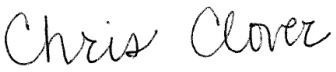 Chris Clover